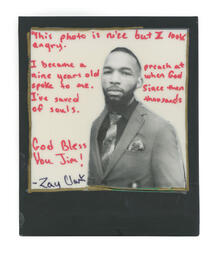 This photo is nice but I look
angry.
I became a preach at
nine years old when God
spoke to me. Since then
I've saved thousands
of souls.
God Bless
You Jim!
-Zay Clark